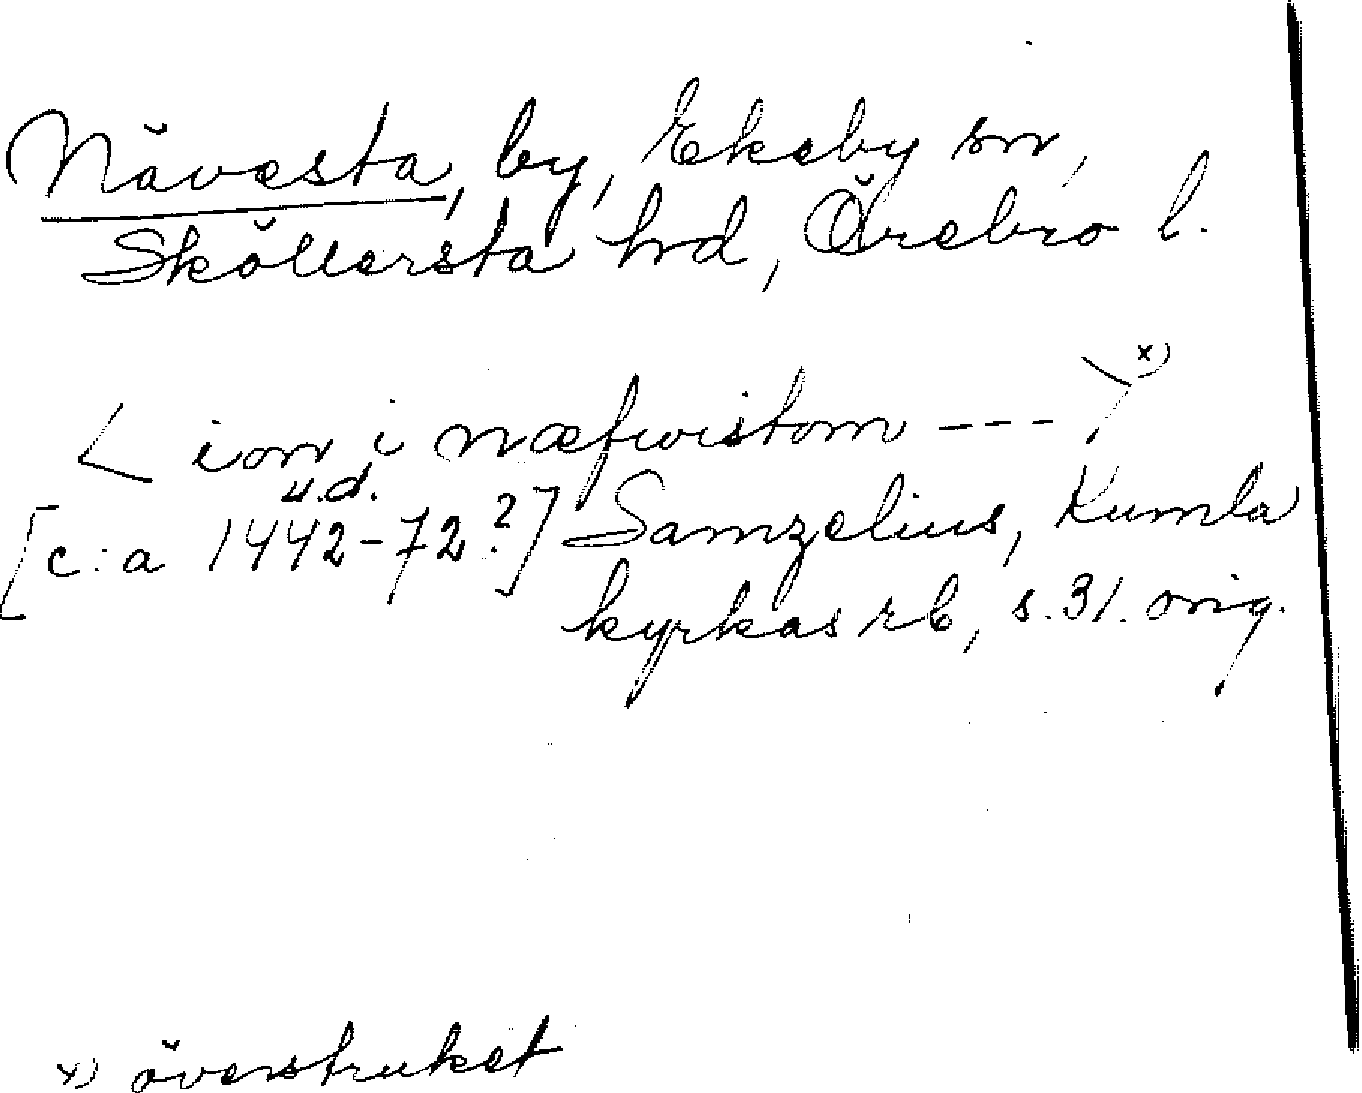 Nävesta, by, Ekeby sn,
Sköllersta hd, Örebro l.
< ion i næfwistom --- > x)
u.d.
[c:a 1442-72?] Samzelius, Kumla
kyrkas rb, s. 31. orig.
x) överstruket